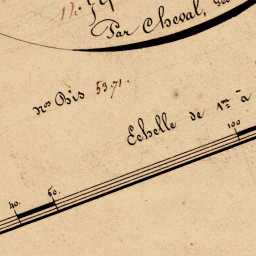 Par Cheval,
nos Bis 53.71.
Echelle de 1re à
40. 50. 100